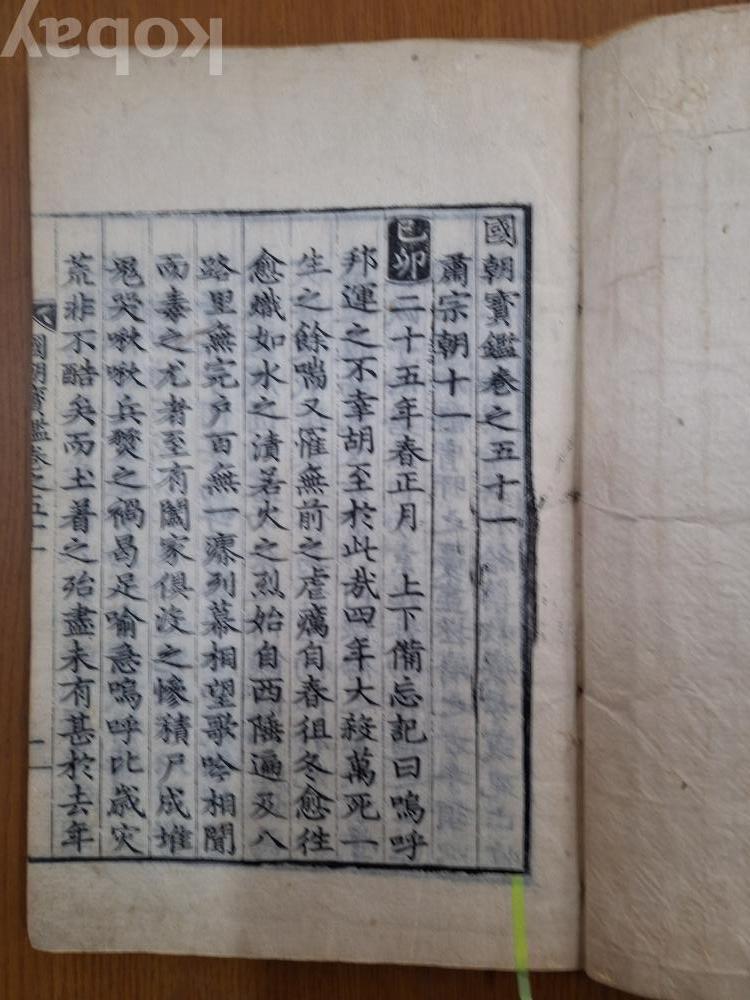 kobay
國朝寶鑑卷之五十一
肅宗朝十一
己卯二十五年春正月 上下備忘記曰嗚呼
邦運之不幸胡至於此哉四年大殺萬死一
生之餘喘又罹無前之虐癘自春徂冬愈往
愈熾如水之漬若火之烈始自西陲遍及八
路里無完戶百無一瘳列幕相望歌吟相聞
而毒之尤者至有闔家俱沒之慘積尸成堆
鬼哭啾啾兵燹之禍曷足喻意嗚呼比歲灾
荒非不酷矣而土着之殆盡未有甚於去年
國朝寶鑑卷之五十一 一